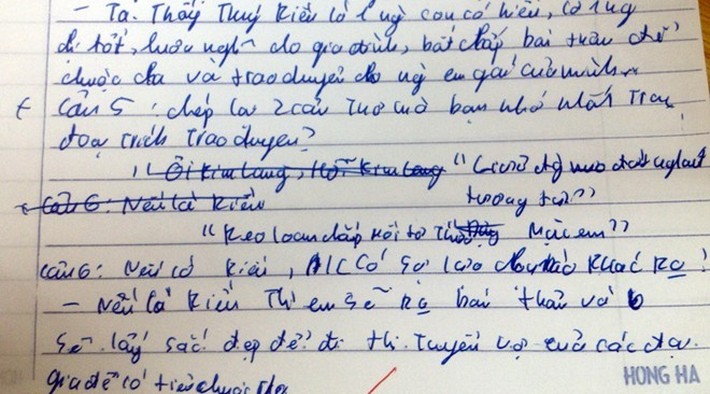 - Ta Thấy Thuý Kiều là 1 ng con có hiếu, có lòg
đi tốt, luôn nghĩ cho gia đình, bất chấp bản thân để
chuộc cha và trao duyên cho ng em gái của mình.
Câu 5 : chép lại 2 câu Thơ mà bạn nhớ nhất Trong
đoạn trích Trao duyên?
"Giữa đg
tương tư"
"Keo loan chắp mối tơ Thừa mặc em"
Câu 6: Nếu là Kiều, có sự lựa chọn nào khác ko?
- Nếu là Kiều Thì em sẽ ko bán Thân và
sẽ lấy sắc đẹp để đi thi Tuyển vợ của các đại
gia để có tiền chuộc cha
HONG HA